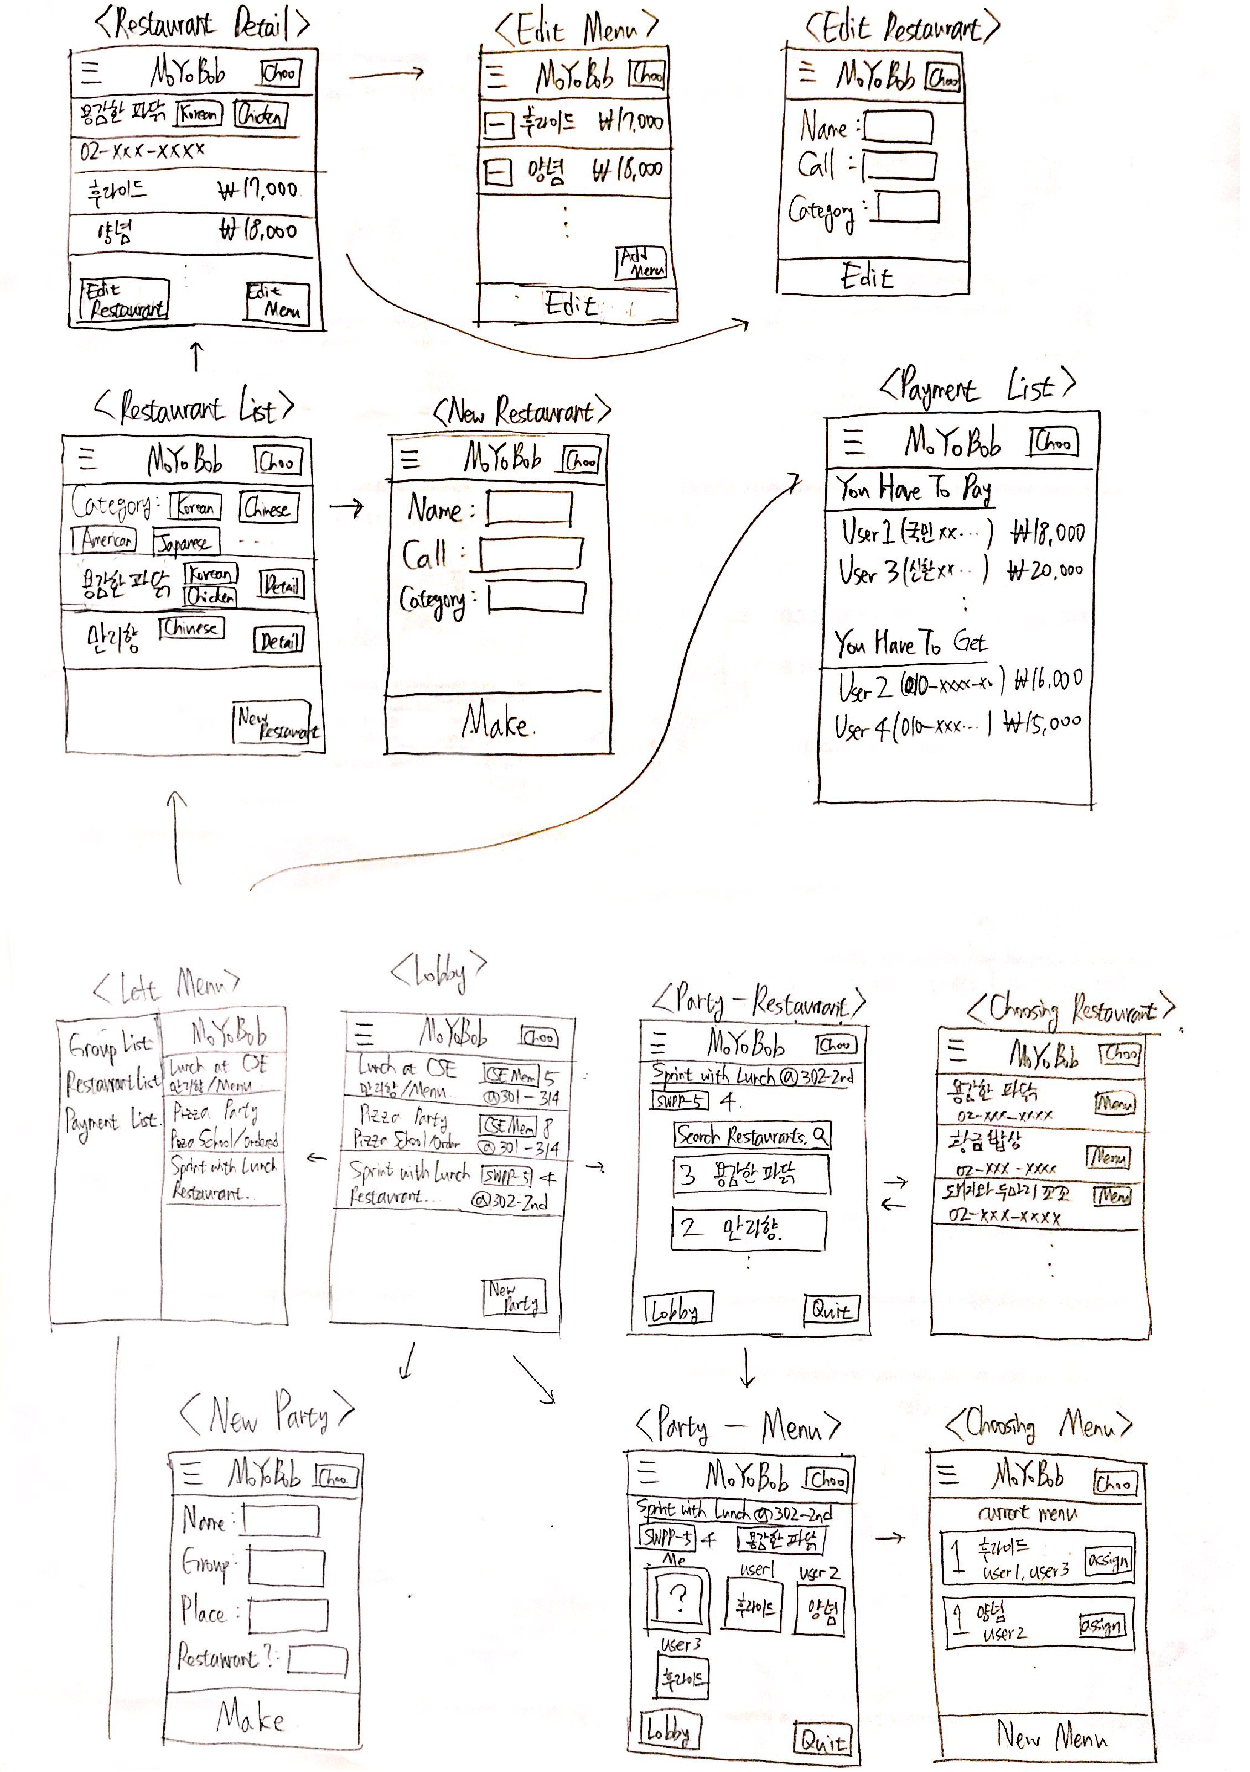 <Restaurant Detail>
☰ MoYoBob Choo
용감한 파닭 Korean Chicken
02-xxx-xxxx
후라이드 ₩17,000
양념 ₩18,000
Edit Restaurant
Edit Menu
<Edit Menu>
☰ MoYoBob Choo
후라이드 ₩17,000
양념 ₩18,000
Add Menu
Edit
<Edit Restaurant>
☰ MoYoBob Choo
Name :
Call :
Category :
Edit
<Restaurant List>
☰ MoYoBob Choo
Category : Korean Chinese
American Japanese ....
용감한 파닭 Korean Chicken Detail
만리향 Chinese Detail
New Restaurant
<New Restaurant>
☰ MoYoBob Choo
Name :
Call :
Category :
Make.
<Payment List>
☰ MoYoBob Choo
You Have To Pay
User 1 (국민 xx...) ₩18,000
User 3 (신한 xx...) ₩20,000
You Have To Get
User 2 (010-xxxx-x.) ₩16,000
User 4 (010-xxx...) ₩15,000
<Left Menu>
Group List
Restaurant List
Payment List
MoYoBob
Lunch at CSE
만리향/Menu
Pizza Party
Pizza School/Ordered
Sprint with Lunch
Restaurant...
<Lobby>
☰ MoYoBob Choo
Lunch at CSE CSE Mem 5
만리향/Menu @301-314
Pizza Party CSE Mem 8
Pizza School/Order @301-314
Sprint with Lunch SWPP-5 4
Restaurant... @302-2nd
New Party
<Party - Restaurant>
☰ MoYoBob Choo
Sprint with Lunch @302-2nd
SWPP-5 4
Search Restaurants.
3 용감한 파닭
2 만리향.
Lobby Quit
<Choosing Restaurant>
☰ MoYoBob Choo
용감한 파닭 Menu
02-xxx-xxxx
황금 밥상 Menu
02-xxx-xxxx
돼지와 두마리 꼬꼬 Menu
02-xxx-xxxx
<New Party>
☰ MoYoBob Choo
Name :
Group :
Place :
Restaurant? :
Make
<Party - Menu>
☰ MoYoBob Choo
Sprint with Lunch @302-2nd
SWPP-5 4 용감한 파닭
Me user1 user2
? 후라이드 양념
user3
후라이드
Lobby Quit
<Choosing Menu>
☰ MoYoBob Choo
current menu
1 후라이드
user1, user3 assign
1 양념
user2 assign
New Menu